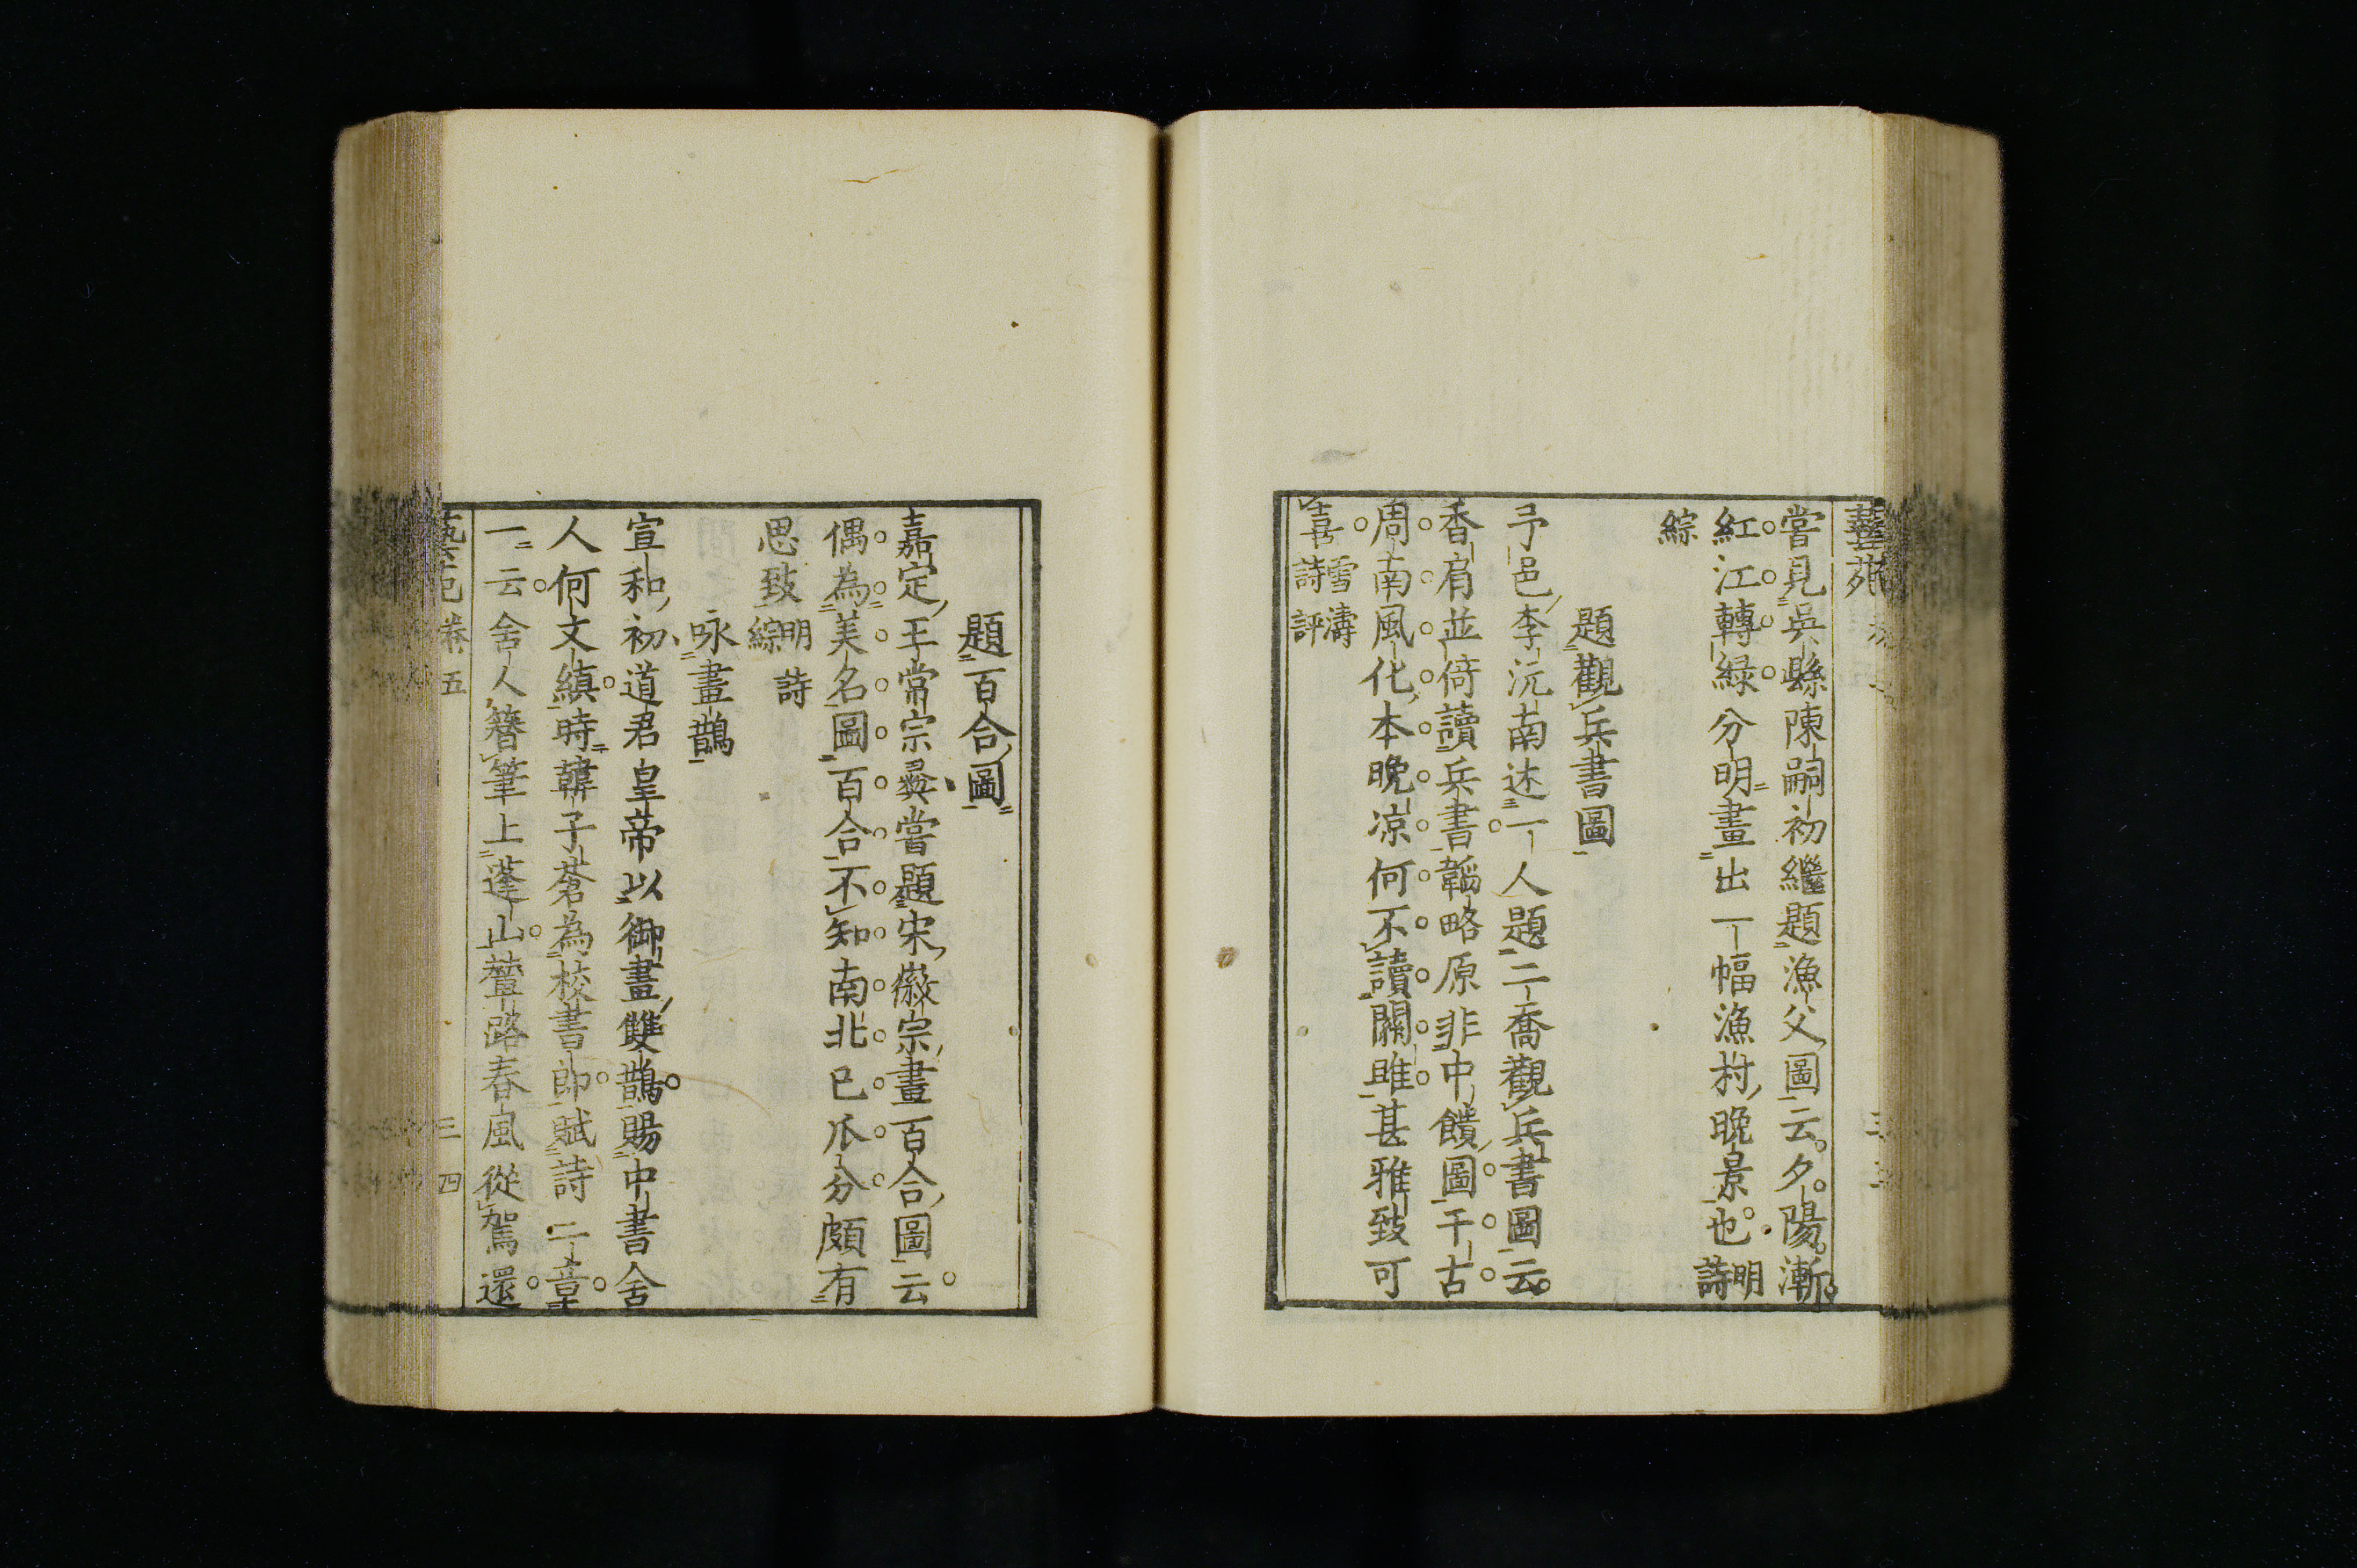 藝苑
嘗見吳縣陳嗣初繼題漁父圖云夕陽漸
紅江轉綠分明畫出一幅漁村晚景也明詩
綜
題觀兵書圖
予邑李沅南述一人題二喬觀兵書圖云
香肩並倚讀兵書韜略原非中饋圖千古
周南風化本晚凉何不讀關雎甚雅致可
喜雪濤詩評
題百合圖
嘉定王常宗彝嘗題宋徽宗畫百合圖云
偶為美名圖百合不知南北已瓜分頗有
思致明詩綜
咏畫鵲
宣和初道君皇帝以御畫雙鵲賜中書舍
人何文縝時韓子蒼為校書郎賦詩二章
一云舍人簪筆上蓬山輦路春風從駕還
卷五
三四